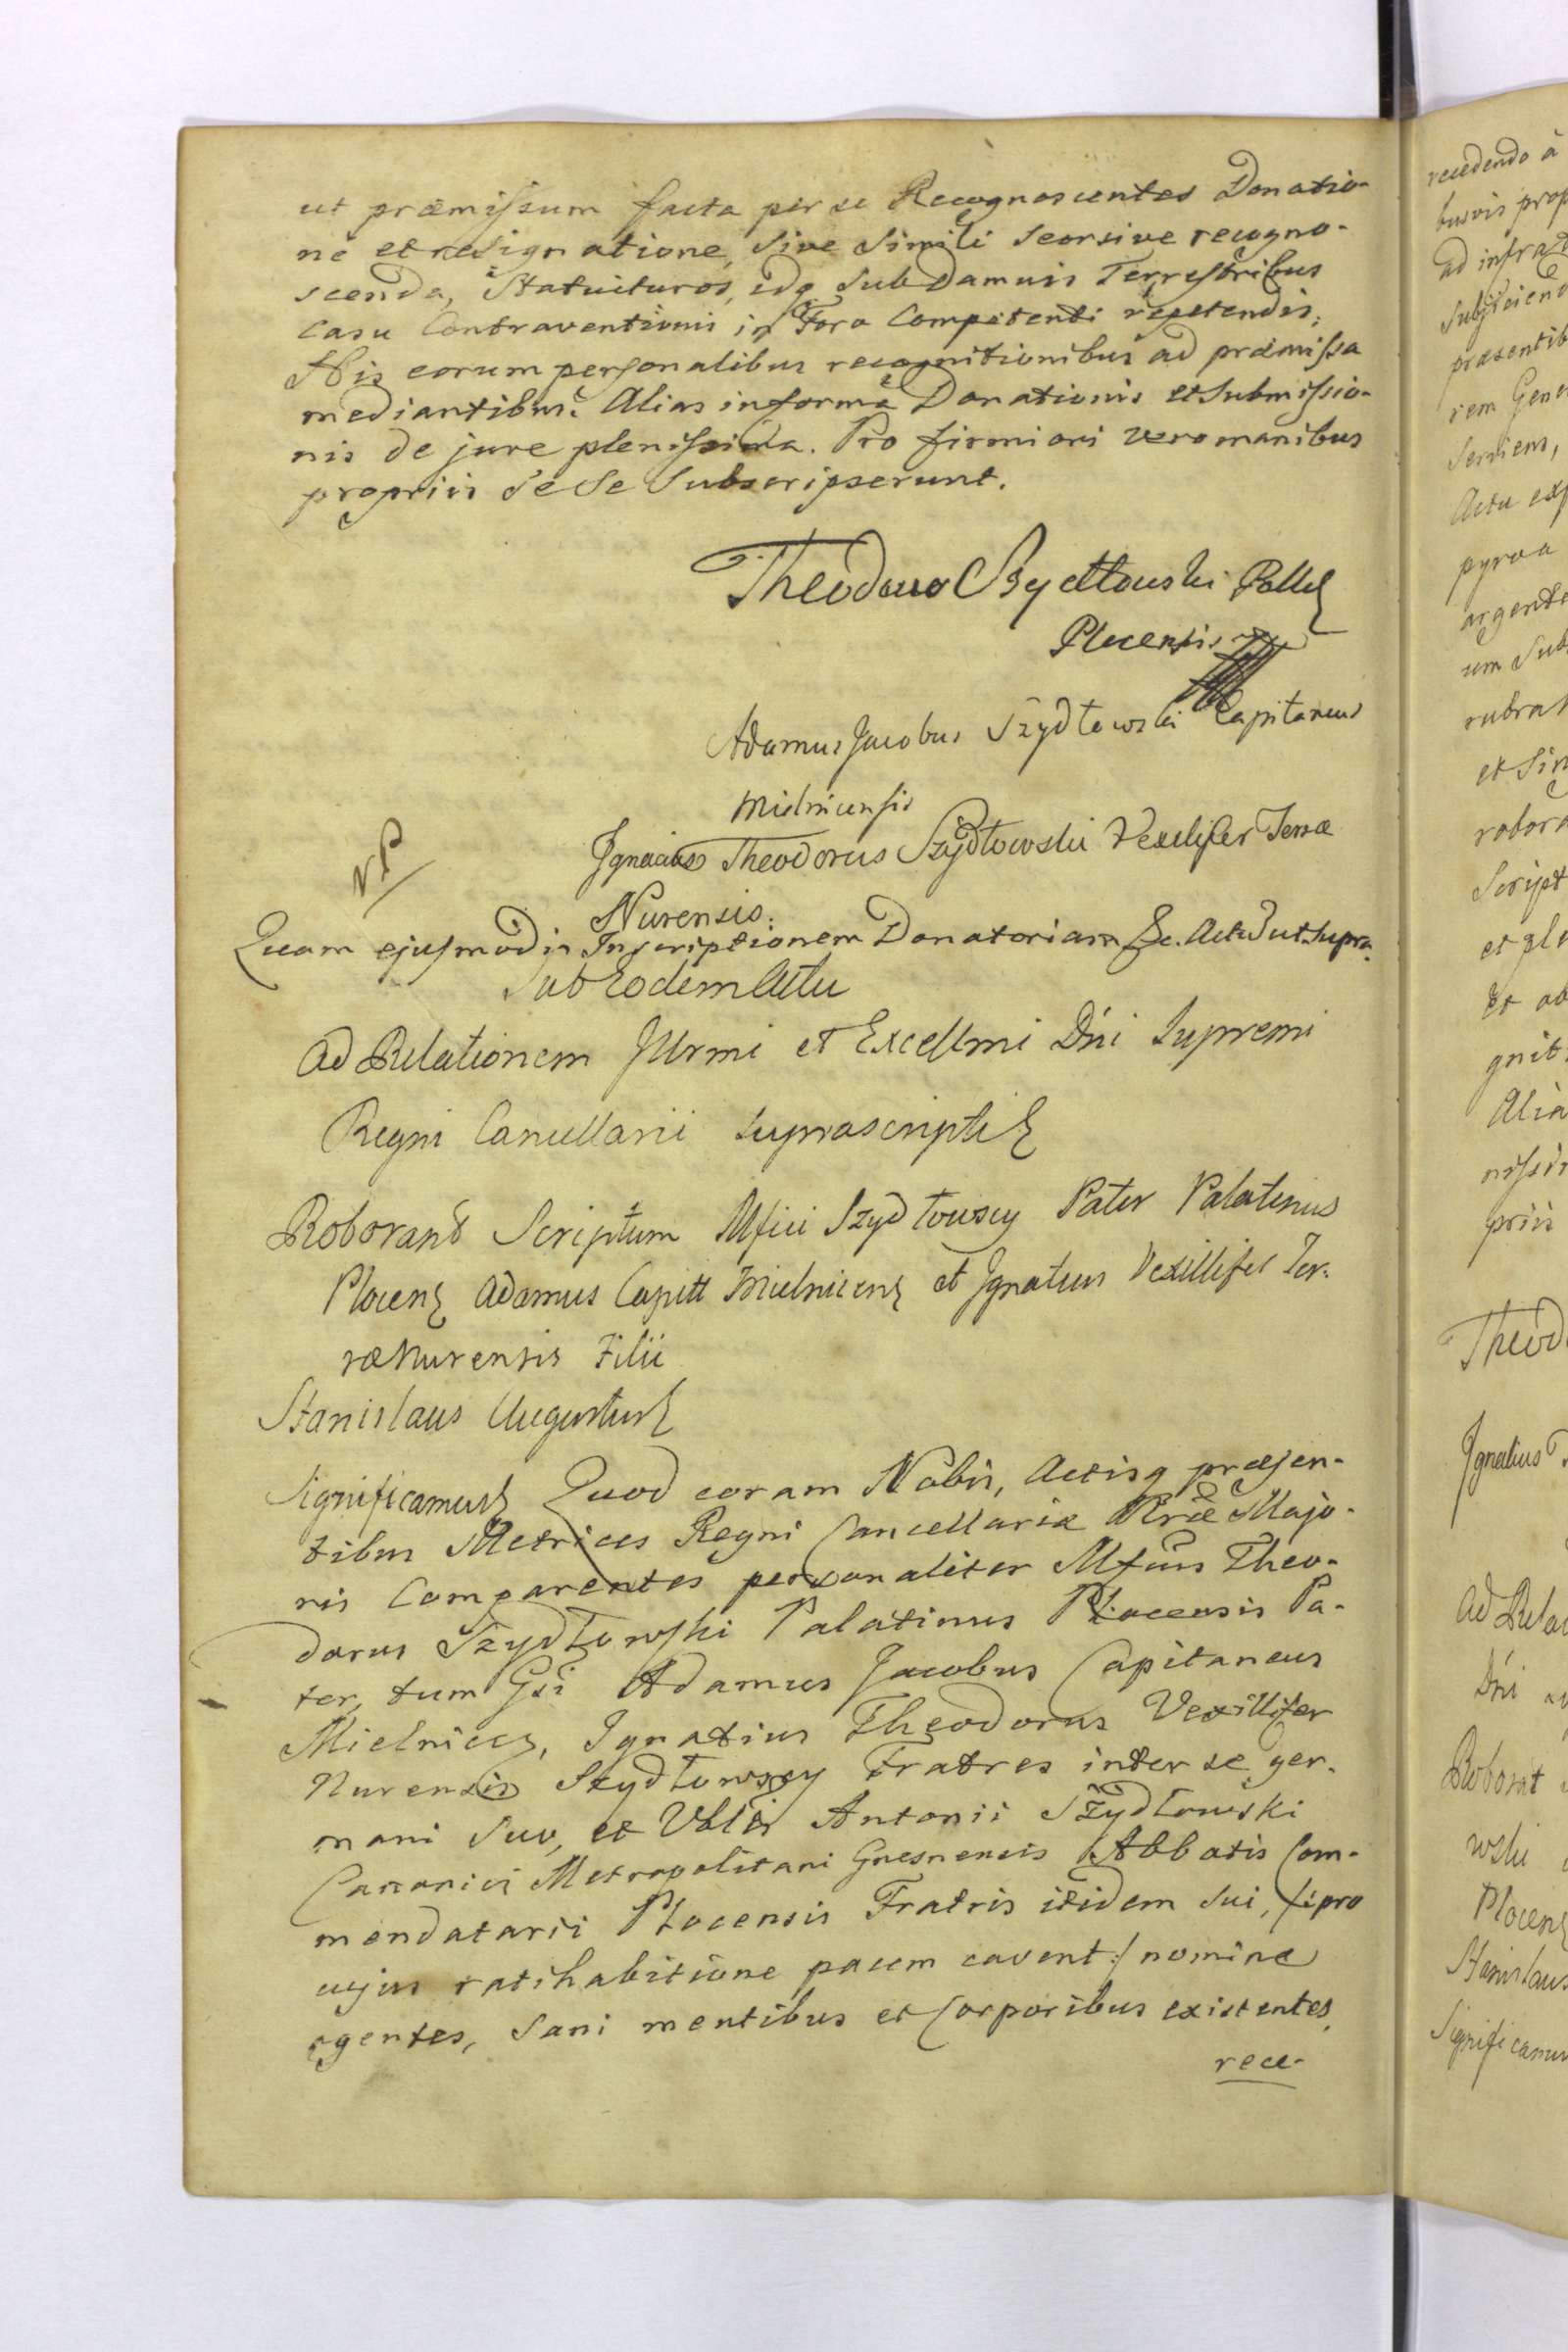 ut præmissum facta per se Recognoscentes Donatio-
ne et resignatione, sive simili seorsive recogno-
scenda, Statuituros, idq sub Damnis Terrestribus
casu Contraventionis in Foro Competenti repetendis;
His eorum personalibus recognitionibus ad præmissa
mediantibus. Alias in forma Donationis et Submissio-
nis de jure plenissima. Pro firmiori vero manibus
propriis sese subscripserunt.
Theodoro Szydłowski
Plocensis
Adamus Jacobus Szydłowski Capitaneus
Mielnicensis
Ignacius Theodorus Szydłowski Vexelifer Terræ
Nurensis.
NB
Quam ejusmodi Inscriptionem Donatoriam &c. Actu ut supra.
Sub Eodem Actu
Ad Relationem Illrmi et Excellmi Dni Supremi
Regni Cancellarii suprascripti
Roborant Scriptum Mfici Szydłowscy Pater Palatinus
Plocens Adamus Capitt Mielnicens et Ignatius Vexillifer Ter-
ræ Nurensis Filii
Stanislaus Augustus
Significamus Quod coram Nobis, Actisq præsen-
tibus Metrices Regni Cancellariæ Majo-
ris Comparentes personaliter Mfcus Theo-
dorus Szydłowski Palatinus Plocensis Pa-
ter, tum Gsi Adamus Jacobus Capitaneus
Mielnicens, Ignatius Theodorus Vexillifer
Nurensis Szydłowscy Fratres inter se ger-
mani suo, et Antonii Szydłowski
Canonici Metropolitani Gnesnensis Abbatis Com-
mendatarii Plocensis Fratris itidem sui, /:pro
cujus ratihabitione pacem cavent:/ nomine
agentes, Sani mentibus et Corporibus existentes,
rece-
recedendo à
busvis prop
ad infra
Subjicien
præsentib
rem Gene
Serviens,
Actu exp
argente
um Sub
rubrat
et Sin
robora
Script
et ple
gnit
Alia
nissi
priis
Theod
Ignatius
Ad Rela
Dni
Roborat
wski
Plocens
Stanislaus
Significamu